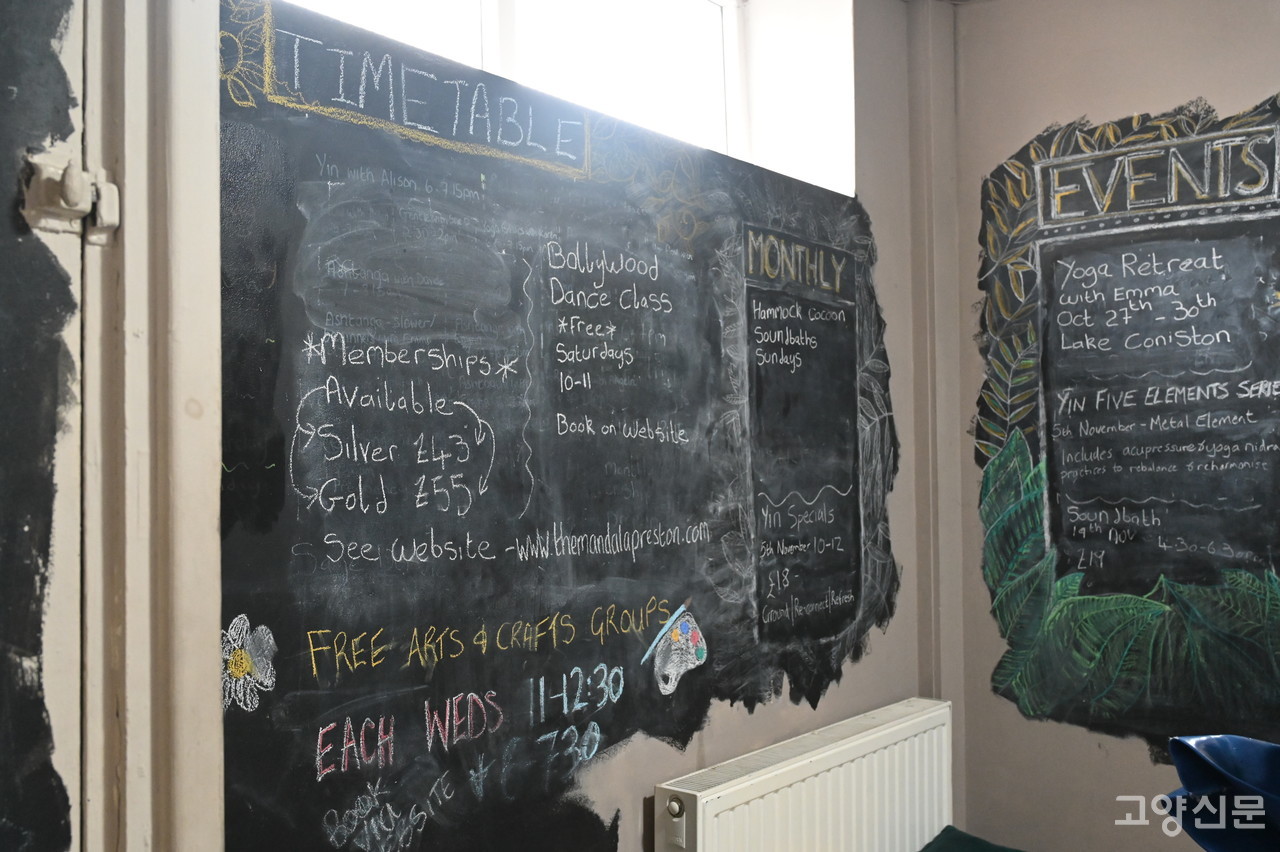 TIMETABLE
Yin with Alison 6-7.15pm
*Memberships*
Available
Silver £43
Gold £55
See website - www.themandalapreston.com
Bollywood
Dance Class
*Free*
Saturdays
10-11
Book on website
FREE ARTS & CRAFTS GROUPS
EACH WEDS 11-12:30
730
MONTHLY
Hammock Cocoon
Soundbaths
Sundays
Yin Specials
5th November 10-12
£18-
Ground/Reconnect/Refresh
EVENTS
Yoga Retreat
with Emma
Oct 27th - 30th
Lake Coniston
YIN FIVE ELEMENTS SERIE
5th November - Metal Element
Includes acupressure & yoga nidra
practices to rebalance & reharmonise
Soundbath
19th Nov 4:30-6:30pm
£19
고양신문